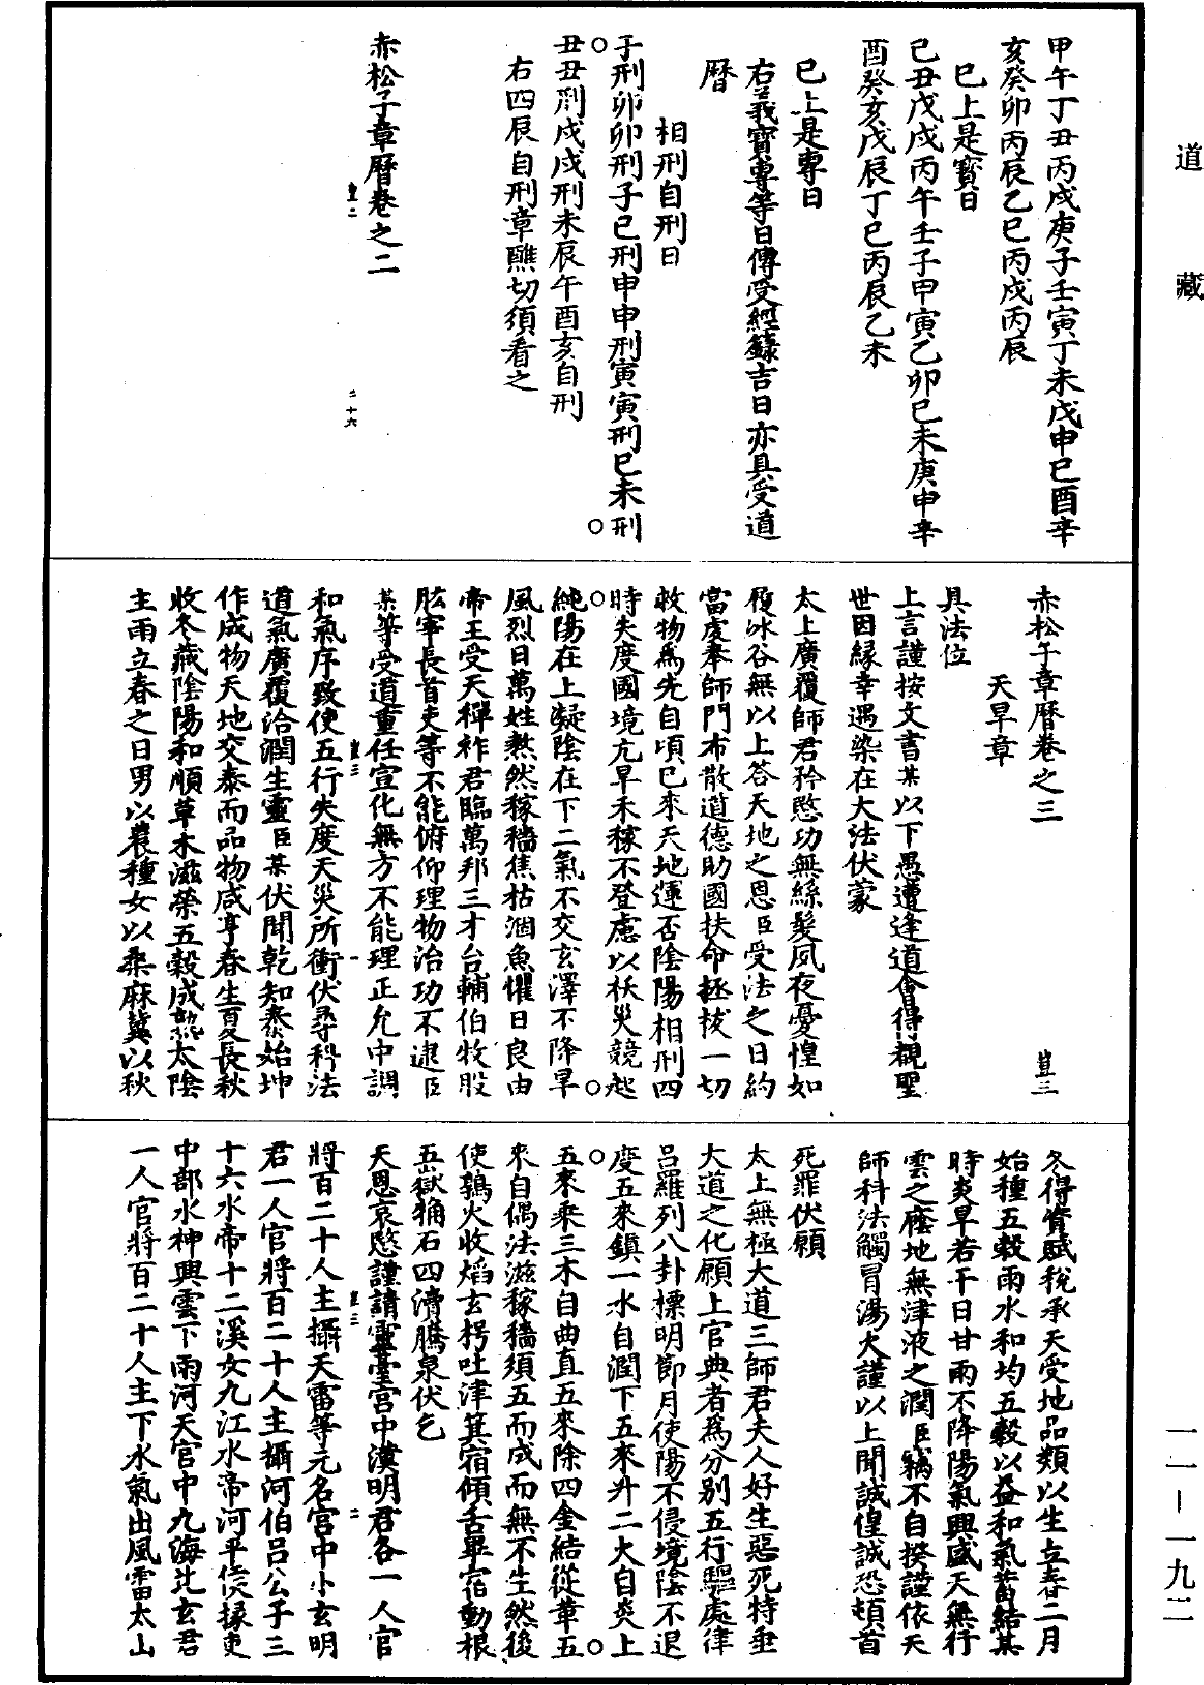 道藏
甲午丁丑丙戌庚子壬寅丁未戊申巳酉辛
亥癸卯丙辰乙巳丙戌丙辰
巳上是寳日
己丑戊戌丙午壬子甲寅乙卯巳未庚申辛
酉癸亥戊辰丁巳丙辰乙未
巳上是專日
右義寳專等日傳受經籙吉日亦具受道
曆
相刑自刑日
子刑卯卯刑子巳刑申申刑寅寅刑巳未刑
丑丑刑戌戌刑未辰午酉亥自刑
右四辰自刑章醮切須看之
赤松子章曆卷之二
豈二
二十六
赤松子章曆卷之三
豈三
天旱章
具法位
上言謹按文書某以下愚遭逢道會得覩聖
世因緣幸遇染在大法伏蒙
太上廣覆師君矜愍功無絲髮夙夜憂惶如
履冰谷無以上答天地之恩臣受法之日約
當虔奉師門布散道德助國扶命拯拔一切
救物爲先自頃巳來天地運否陰陽相刑四
時失度國境亢旱禾稼不登慮以秋災競起
純陽在上凝陰在下二氣不交玄澤不降旱
風烈日萬姓熬然稼穡焦枯涸魚懼日良由
帝王受天禪祚君臨萬邦三才台輔伯牧股
肱宰長首吏等不能俯仰理物治功不逮臣
某等受道重任宣化無方不能理正允中調
和氣序致使五行失度天災所衝伏尋科法
豈三
一
道氣廣覆洽潤生靈臣某伏聞乾知泰始坤
作成物天地交泰而品物咸亨春生夏長秋
收冬藏陰陽和順草木滋榮五穀成熟太陰
主雨立春之日男以農種女以桑麻冀以秋
冬得資賦稅承天受地品類以生立春二月
始種五穀雨水和均五穀以益和氣蓄結某
時炎旱若干日甘雨不降陽氣興盛天無行
雲之廕地無津液之潤臣竊不自揆謹依天
師科法觸冒湯火謹以上聞誠惶誠恐頓首
死罪伏願
太上無極大道三師君夫人好生惡死特垂
大道之化願上官典者爲分別五行驅處律
呂羅列八卦摽明節月使陽不侵境陰不退
度五來鎭一水自潤下五來升二大自炎上
五來乘三木自曲直五來除四金結從革五
來自偶法滋稼穡須五而成而無不生然後
使鶉火收焰玄枵吐津箕宿傾舌畢宿動根
五嶽㸿石四瀆騰泉伏乞
天恩哀愍謹請靈臺宮中漢明君各一人官
將百二十人主攝天雷等元名宮中小玄明
豈三
二
君一人官將百二十人主攝河伯呂公子三
十六水帝十二溪女九江水帝河平侯掾吏
中部水神興雲下雨河天官中九海北玄君
一人官將百二十人主下水氣出風雷太山
一一—一九二